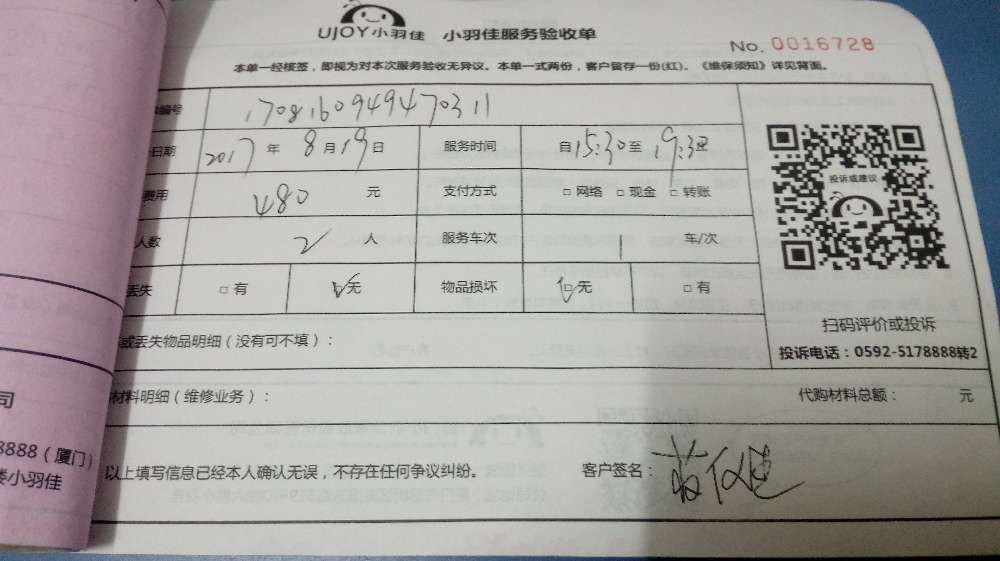 UJOY小羽佳 小羽佳服务验收单
No. 0016728
本单一经核签，即视为对本次服务验收无异议。本单一式两份，客户留存一份(红)。《维保须知》详见背面。
编号 1708160949470311
日期 2017 年 8 月 19 日 服务时间 自 15:30 至 19:30
费用 480 元 支付方式 □ 网络 □ 现金 □ 转账
人数 2 人 服务车次 1 车/次
丢失 □ 有 □ 无 物品损坏 □ 无 □ 有
投诉或建议
扫码评价或投诉
投诉电话：0592-5178888转2
或丢失物品明细（没有可不填）：
材料明细（维修业务）： 代购材料总额： 元
以上填写信息已经本人确认无误，不存在任何争议纠纷。 客户签名：
司
8888（厦门）
楼小羽佳